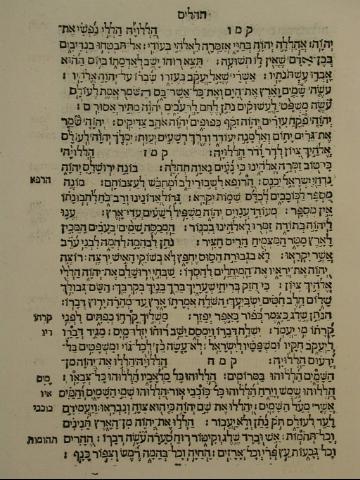 תהלים
קמו הללויה הללי נפשי את־
יהוה: אהללה יהוה בחיי אזמרה לאלהי בעודי: אל־תבטחו בנדיבים
בבן־אדם שאין לו תשועה: תצא רוחו ישב לאדמתו ביום ההוא
אבדו עשתנתיו: אשרי שאל יעקב בעזרו שברו על־יהוה אלהיו:
עשה שמים וארץ את־הים ואת־כל־אשר־בם השמר אמת לעולם:
עשה משפט לעשוקים נתן לחם לרעבים יהוה מתיר אסורים:
יהוה פקח עורים יהוה זקף כפופים יהוה אהב צדיקים: יהוה שמר
את־גרים יתום ואלמנה יעודד ודרך רשעים יעות: ימלך יהוה לעולם
אלהיך ציון לדר ודר הללויה: קמז הללויה
כי טוב זמרה אלהינו כי נעים נאוה תהלה: בונה ירושלם יהוה
נדחי ישראל יכנס: הרופא לשבורי לב ומחבש לעצבותם: מונה
הרפא
מספר לכוכבים לכלם שמות יקרא: גדול אדונינו ורב כח לתבונתו
אין מספר: מעודד ענוים יהוה משפיל רשעים עדי ארץ: ענו
ליהוה בתודה זמרו לאלהינו בכנור: המכסה שמים בעבים המכין
לארץ מטר המצמיח הרים חציר: נתן לבהמה לחמה לבני ערב
אשר יקראו: לא בגבורת הסוס יחפץ לא בשוקי האיש ירצה: רוצה
יהוה את־יראיו את־המיחלים לחסדו: שבחי ירושלם את־יהוה הללי
אלהיך ציון: כי חזק בריחי שעריך ברך בניך בקרבך: השם גבולך
שלום חלב חטים ישביעך: השלח אמרתו ארץ עד־מהרה ירוץ דברו:
הנתן שלג כצמר כפור כאפר יפזר: משליך קרחו כפתים לפני
קרחו
קרתו מי יעמד: ישלח דברו וימסם ישב רוחו יזלו־מים: מגיד דברו
ליעקב חקיו ומשפטיו לישראל: לא עשה כן לכל גוי ומשפטים בל־
ידעום הללויה: קמח הללויה הללו את־יהוה מן־
השמים הללוהו במרומים: הללוהו כל־מלאכיו הללוהו כל־צבאו:
הללוהו שמש וירח הללוהו כל־כוכבי אור: הללוהו שמי השמים והמים
אשר מעל השמים: יהללו את־שם יהוה כי הוא צוה ונבראו: ויעמידם
כוכבי
לעד לעולם חק נתן ולא יעבור: הללו את־יהוה מן־הארץ תנינים
וכל תהמות: אש וברד שלג וקיטור רוח סערה עשה דברו: ההרים
תהומות
וכל גבעות עץ פרי וכל ארזים: החיה וכל בהמה רמש וצפור כנף: